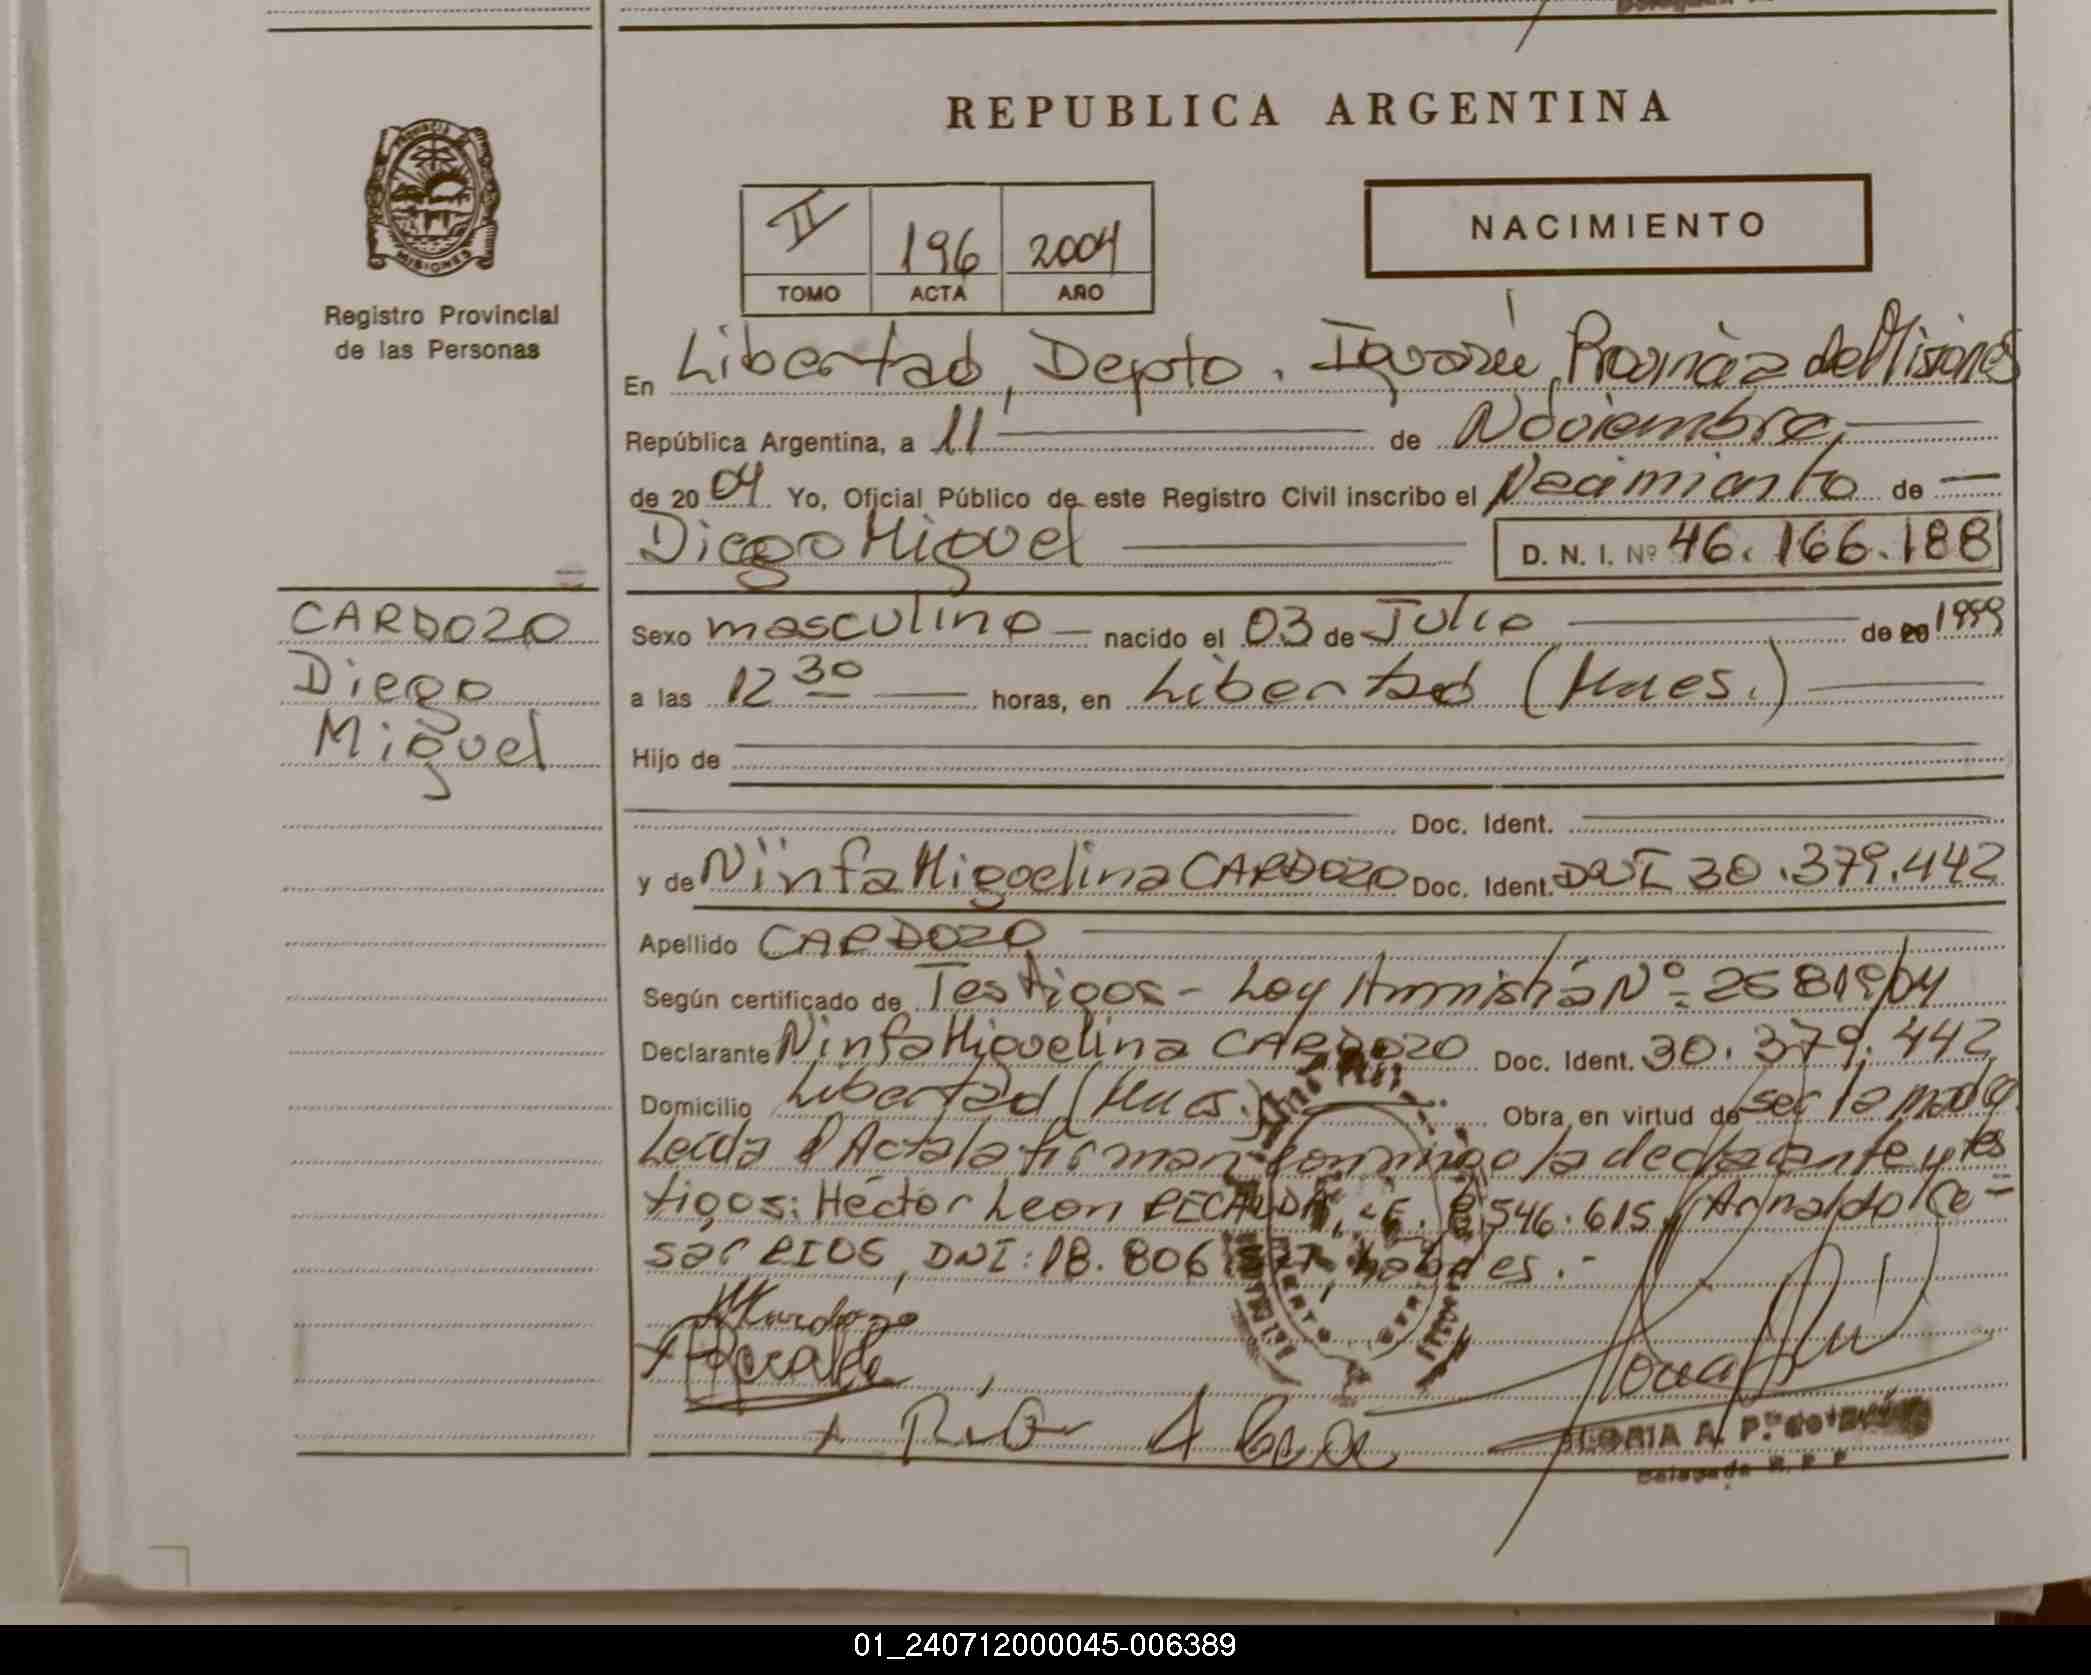 REPUBLICA ARGENTINA
PROVINCIA DE
MISIONES
Registro Provincial
de las Personas
II 196 2004
TOMO ACTA AÑO
NACIMIENTO
En Libertad, Depto. Iguazú, Provincia de Misiones
República Argentina, a 11 de Noviembre
de 20 04 Yo, Oficial Público de este Registro Civil inscribo el Nacimiento de
Diego Miguel
D. N. I. Nº 46.166.188
CARDOZO
Diego
Miguel
Sexo masculino nacido el 03 de Julio de 20 1999
a las 12 30 horas, en Libertad (Mnes.)
Hijo de
Doc. Ident.
y de Ninfa Miguelina CARDOZO Doc. Ident. DNI 30.379.442
Apellido CARDOZO
Según certificado de Testigos - Ley Amnistía Nº 25819/04
Declarante Ninfa Miguelina CARDOZO Doc. Ident. 30.379.442
Domicilio Libertad (Mnes.) Obra en virtud de ser la madre
Leída el Acta la firman conmigo la declarante y tes
tigos: Héctor Leon RECALDE, L.E. 8.546.615, Arnaldo Ce-
sar RIOS, DNI: 18.806 hábiles.-
MCardozo
Recalde
Rios A Cesar
GLORIA A. P. de
Delegada R. P. P
01_240712000045-006389